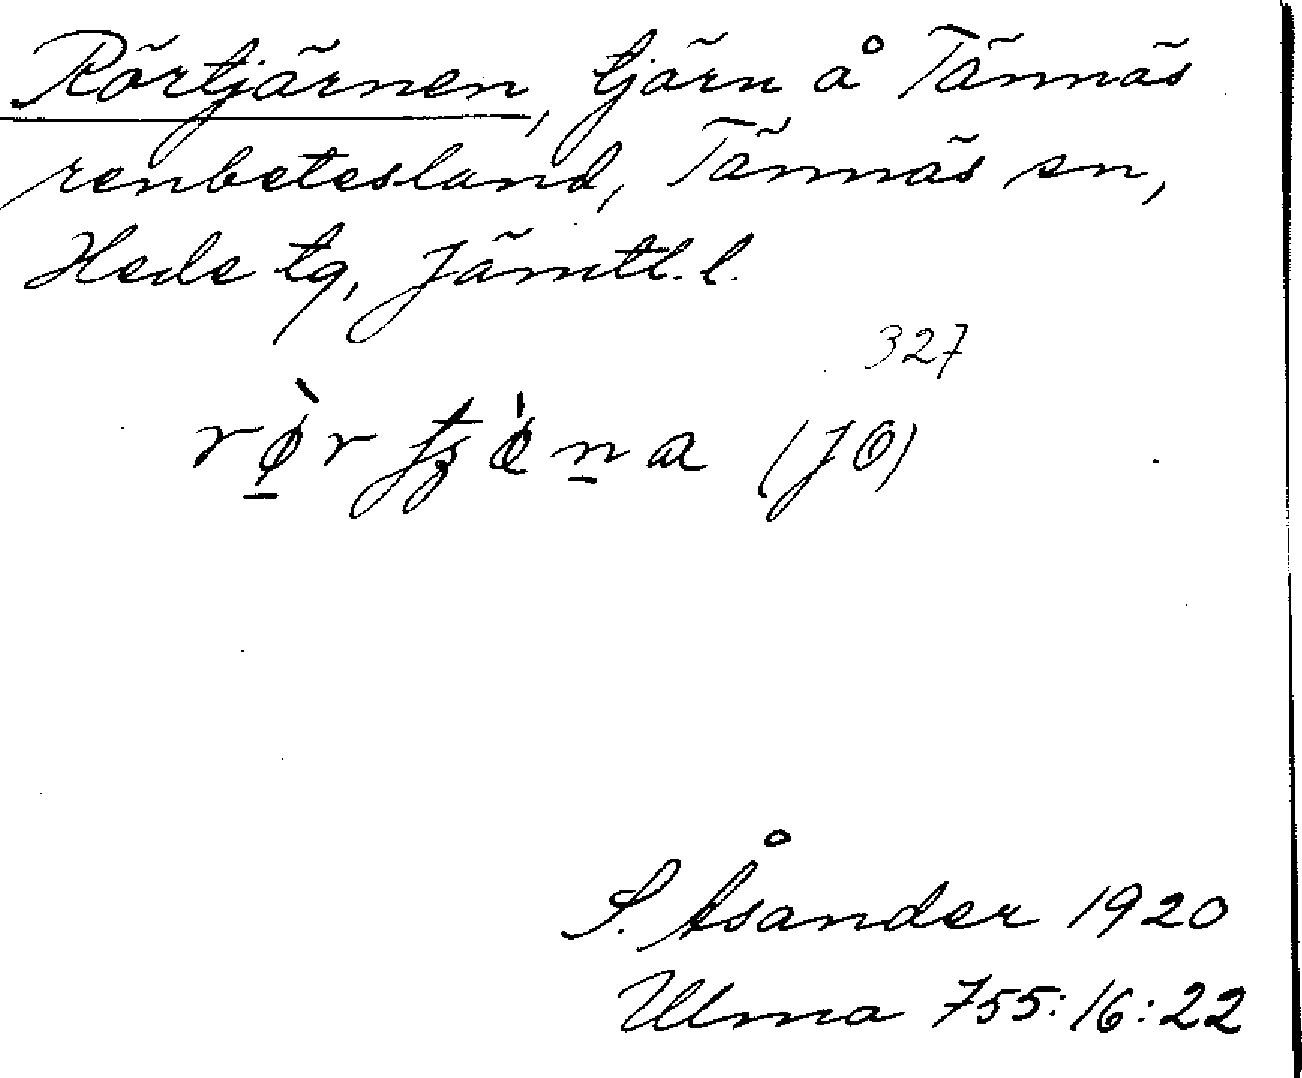 Rörtjärnen, tjärn å Tännäs
renbetesland, Tännäs sn,
Hede tg, Jämtl. l.
327
(JÖ)
S. Åsander 1920
Ulma 755:16:22